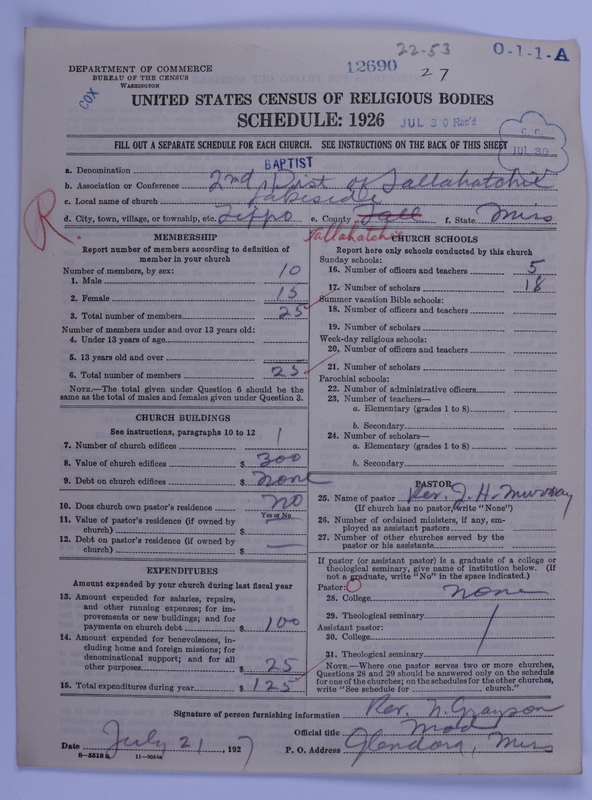 22-53
O-1-1-A
DEPARTMENT OF COMMERCE
BUREAU OF THE CENSUS
WASHINGTON
12690
27
COX
UNITED STATES CENSUS OF RELIGIOUS BODIES
SCHEDULE: 1926
JUL 30 Rec'd
C. C.
JUL 30
FILL OUT A SEPARATE SCHEDULE FOR EACH CHURCH. SEE INSTRUCTIONS ON THE BACK OF THIS SHEET
a. Denomination BAPTIST
b. Association or Conference 2nd Dist of Tallahatchie
c. Local name of church Lakeside
d. City, town, village, or township, etc. Tippo e. County Tall f. State Miss
R.
Tallahatchie
MEMBERSHIP
Report number of members according to definition of
member in your church
Number of members, by sex:
1. Male 10
2. Female 15
3. Total number of members 25
Number of members under and over 13 years old:
4. Under 13 years of age
5. 13 years old and over
6. Total number of members 25
NOTE.—The total given under Question 6 should be the
same as the total of males and females given under Question 3.
CHURCH BUILDINGS
See instructions, paragraphs 10 to 12
7. Number of church edifices 1
8. Value of church edifices $ 300
9. Debt on church edifices $ none
10. Does church own pastor's residence no
Yes or No
11. Value of pastor's residence (if owned by
church) $
12. Debt on pastor's residence (if owned by
church) $ —
EXPENDITURES
Amount expended by your church during last fiscal year
13. Amount expended for salaries, repairs,
and other running expenses; for im-
provements or new buildings; and for
payments on church debt $ 100
14. Amount expended for benevolences, in-
cluding home and foreign missions; for
denominational support; and for all
other purposes $ 25
15. Total expenditures during year $ 125
CHURCH SCHOOLS
Report here only schools conducted by this church
Sunday schools:
16. Number of officers and teachers 5
17. Number of scholars 18
Summer vacation Bible schools:
18. Number of officers and teachers
19. Number of scholars
Week-day religious schools:
20. Number of officers and teachers
21. Number of scholars
Parochial schools:
22. Number of administrative officers
23. Number of teachers—
a. Elementary (grades 1 to 8)
b. Secondary
24. Number of scholars—
a. Elementary (grades 1 to 8)
b. Secondary
PASTOR
25. Name of pastor Rev. J. H. Murray
(If church has no pastor, write "None")
26. Number of ordained ministers, if any, em-
ployed as assistant pastors
27. Number of other churches served by the
pastor or his assistants
If pastor (or assistant pastor) is a graduate of a college or
theological seminary, give name of institution below. (If
not a graduate, write "No" in the space indicated.)
Pastor:
28. College none
29. Theological seminary
Assistant pastor:
30. College
31. Theological seminary
NOTE.—Where one pastor serves two or more churches,
Questions 28 and 29 should be answered only on the schedule
for one of the churches; on the schedules for the other churches,
write "See schedule for church."
Signature of person furnishing information Rev. N. Grayson
Official title Mod
Date July 21, 1927 P. O. Address Glendora, Miss
8-5518a 11-9554